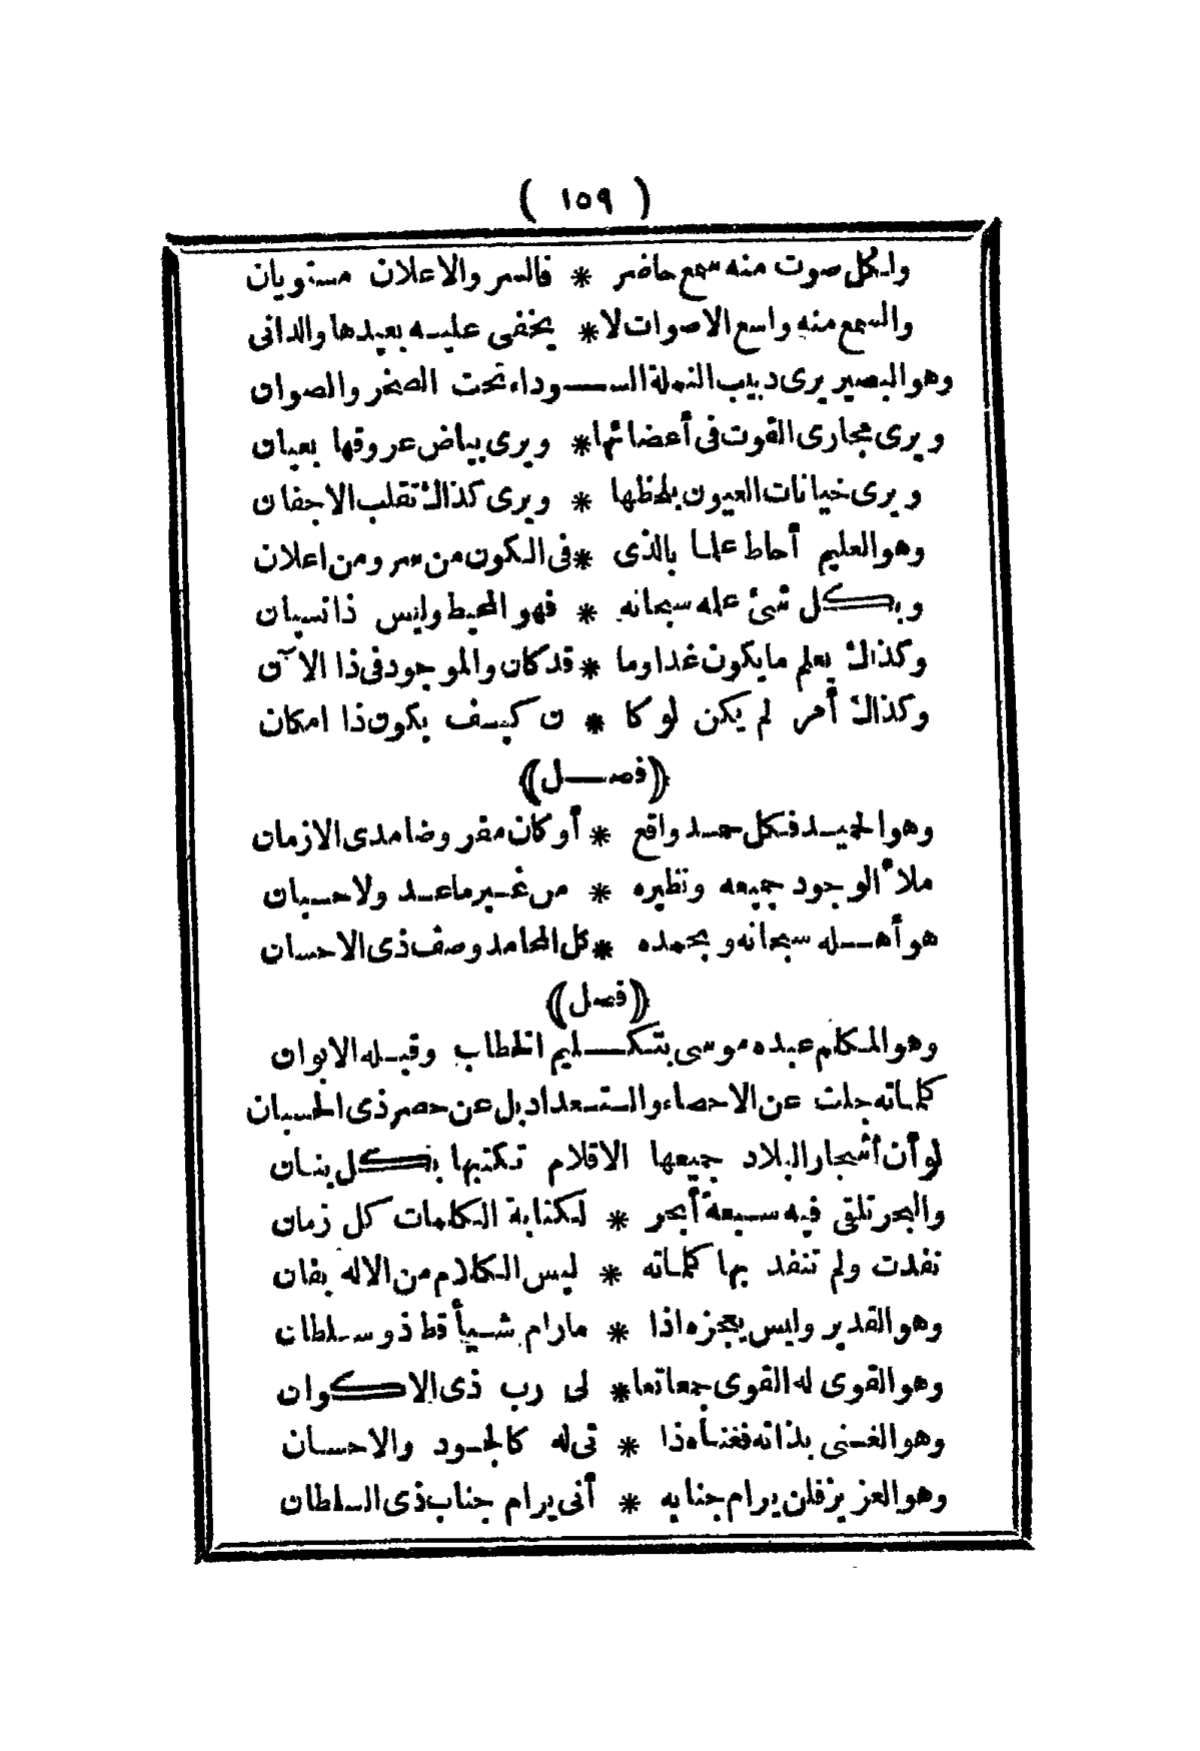 ( ١٥٩ )
ولكل صوت منه سمع حاضر * فالسر والاعلان مستويان
والسمع منه واسع الاصوات لا * يخفى عليه بعيدها والدانى
وهو البصير يرى دبيب النملة السوداء تحت الصخر والصوان
ويرى مجارى القوت فى أعضائها * ويرى بياض عروقها بعيان
ويرى خيانات العيون بلحظها * ويرى كذاك تقلب الاجفان
وهو العليم أحاط علما بالذى * فى الكون من سر ومن اعلان
وبكل شئ علمه سبحانه * فهو المحيط وليس ذا نسيان
وكذاك يعلم ما يكون غدا وما * قد كان والموجود فى ذا الآن
وكذاك أمر لم يكن لو كا * ن كيف يكون ذا امكان
﴿فصل﴾
وهو الحميد فكل حمد واقع * أو كان مفروضا مدى الازمان
ملأ الوجود جميعه ونظيره * من غير ما عد ولا حسبان
هو أهله سبحانه وبحمده * كل المحامد وصف ذى الاحسان
﴿فصل﴾
وهو المكلم عبده موسى بتكليم الخطاب وقبله الابوان
كلماته جلت عن الاحصاء والتعداد بل عن حصر ذى الحسبان
لو أن أشجار البلاد جميعها الاقلام تكتبها بكل بنان
والبحر تلقى فيه سبعة أبحر * لكتابة الكلمات كل زمان
نفدت ولم تنفد بها كلماته * ليس الكلام من الاله بفان
وهو القدير وليس يعجزه اذا * مارام شيأ قط ذو سلطان
وهو القوى له القوى جمعا تعا * لى رب ذى الاكوان
وهو الغنى بذاته فغناه ذا * تى له كالجود والاحسان
وهو العزيز فلن يرام جنابه * أنى يرام جناب ذى السلطان